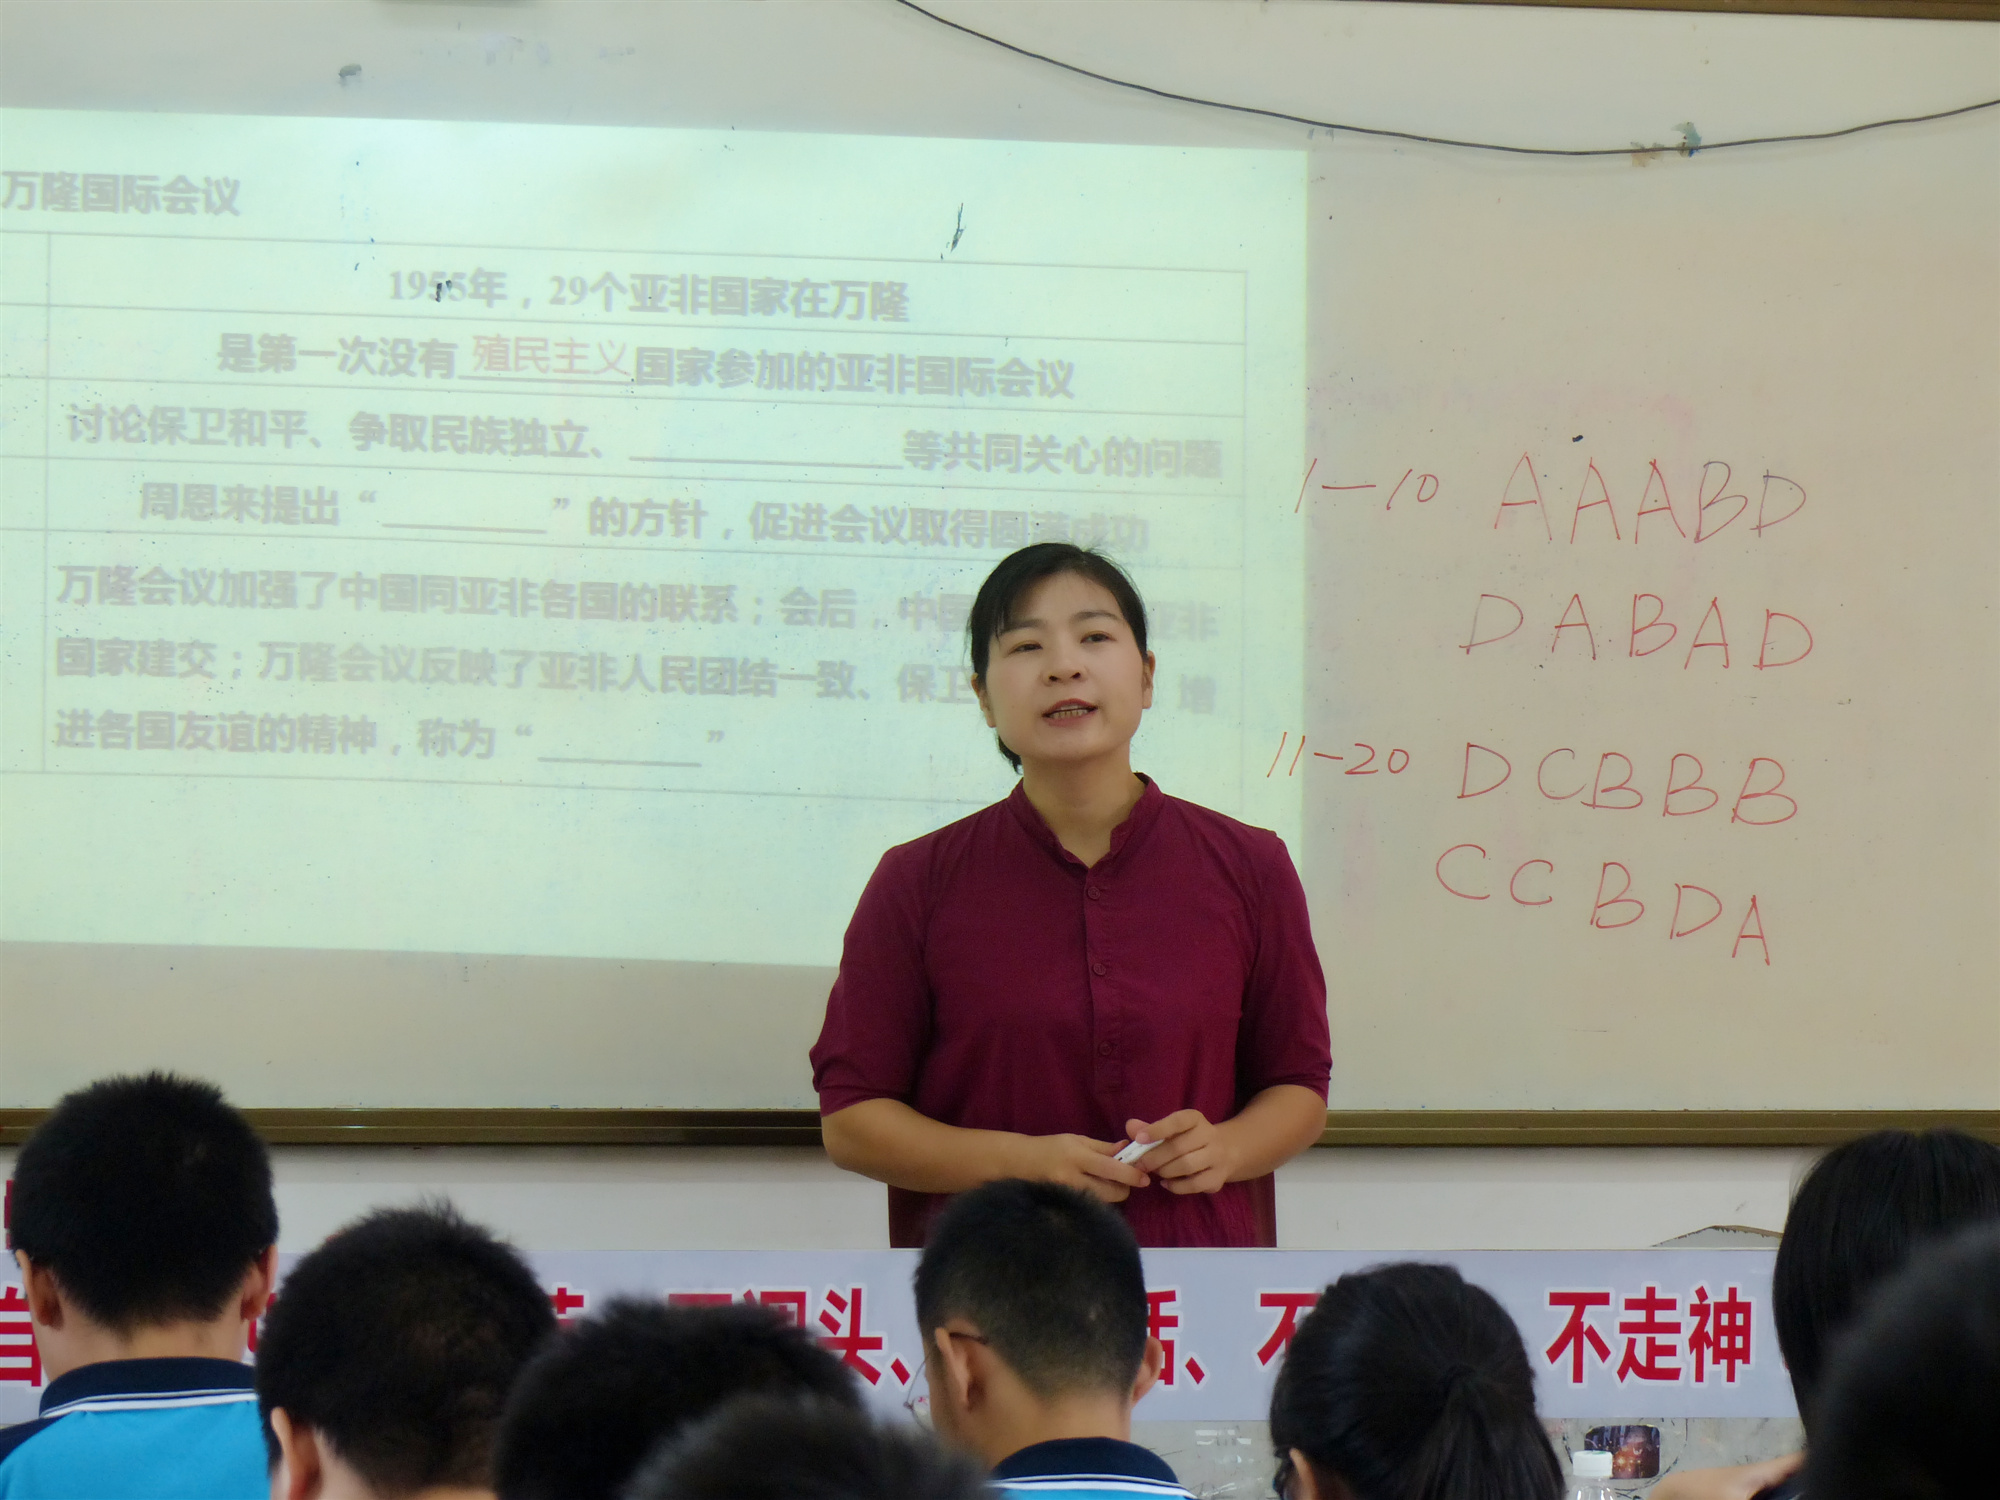 万隆国际会议
1955年，29个亚非国家在万隆
是第一次没有 殖民主义 国家参加的亚非国际会议
讨论保卫和平、争取民族独立、____________等共同关心的问题
周恩来提出“________”的方针，促进会议取得圆满成功
万隆会议加强了中国同亚非各国的联系；会后，中国 亚非
国家建交；万隆会议反映了亚非人民团结一致、保卫 增
进各国友谊的精神，称为“________”
1—10 AAABD
DABAD
11-20 DCBBB
CCBDA
头、 话、不 不走神